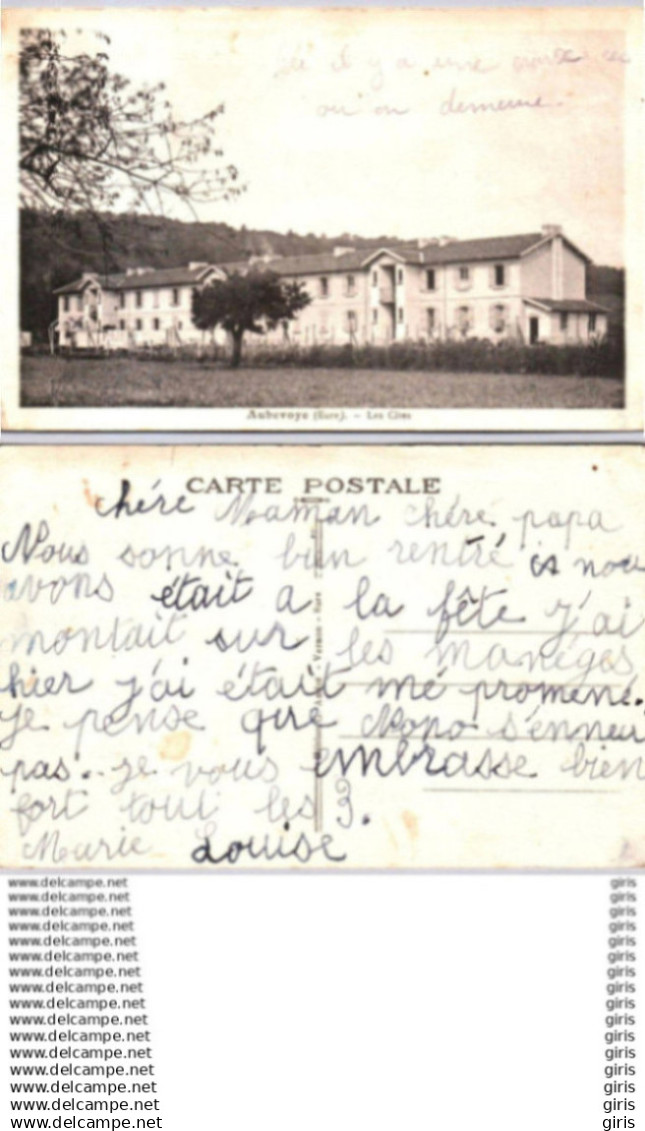 il y a une
ou on demeure.
Aubevoye (Eure). - Les Cités
CARTE POSTALE
chére Maman chére papa
Nous sonne bien rentré nou
avons était a la fête j'ai
montait sur les manéges
hier j'ai était mé promené.
je pense que Nono s'enneui
pas. je vous embrasse bien
fort tout les 3.
Marie Louise
www.delcampe.net giris
www.delcampe.net giris
www.delcampe.net giris
www.delcampe.net giris
www.delcampe.net giris
www.delcampe.net giris
www.delcampe.net giris
www.delcampe.net giris
www.delcampe.net giris
www.delcampe.net giris
www.delcampe.net giris
www.delcampe.net giris
www.delcampe.net giris
www.delcampe.net giris
www.delcampe.net giris
www.delcampe.net giris